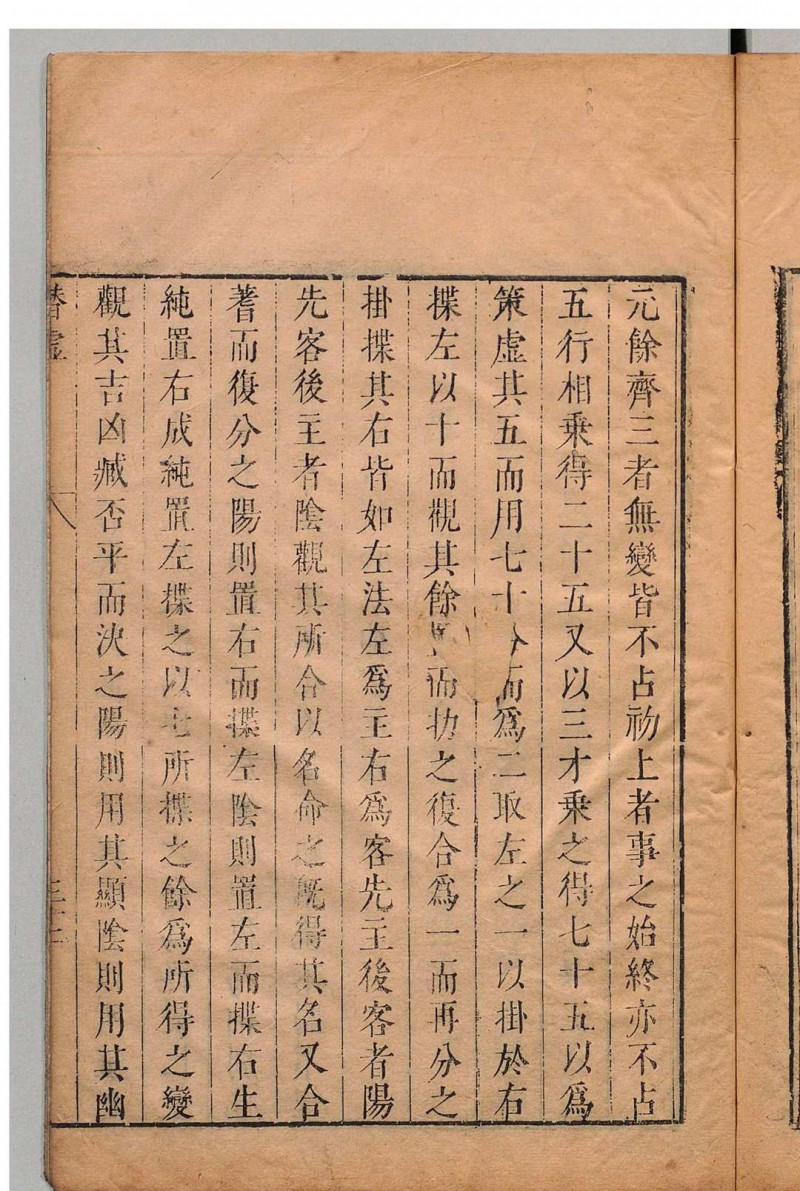 元餘齊三者無變皆不占初上者事之始終亦不占
五行相乘得二十五又以三才乘之得七十五以爲
策虛其五而用七十分而爲二取左之一以掛於右
揲左以十而觀其餘而扐之復合爲一而再分之
掛揲其右皆如左法左爲主右爲客先主後客者陽
先客後主者陰觀其所合以名命之既得其名又合
蓍而復分之陽則置右而揲左陰則置左而揲右生
純置右成純置左揲之以七所揲之餘爲所得之變
觀其吉凶臧否平而決之陽則用其顯陰則用其幽
潛虛